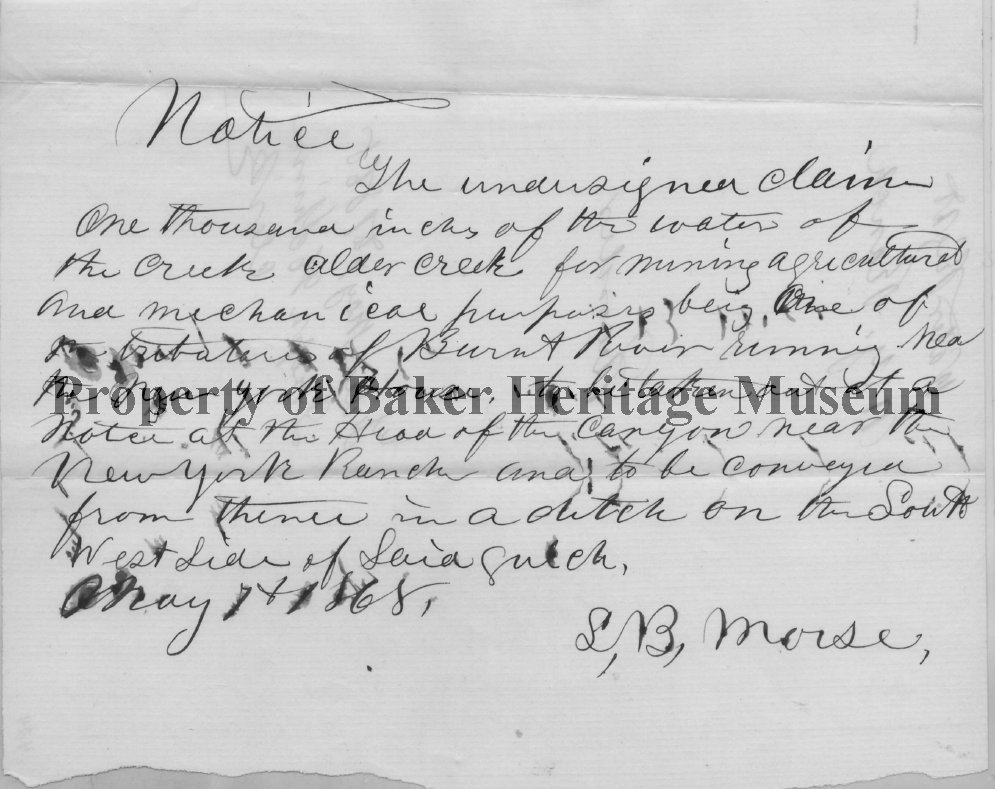 Notice
The undersigned claim
One thousand inches of the water of
the Creek alder creek for mining agricultural
and mechanical purposes being One of
the Tributaries of Burnt River running Nea
the New york House, to be taken out at a
Notice at the Head of the Canyon near the
New York Ranch and to be conveyed
from thence in a ditch on the South
West Side of Said gulch,
May 1st 1868,
L, B, Morse,
Property of Baker Heritage Museum